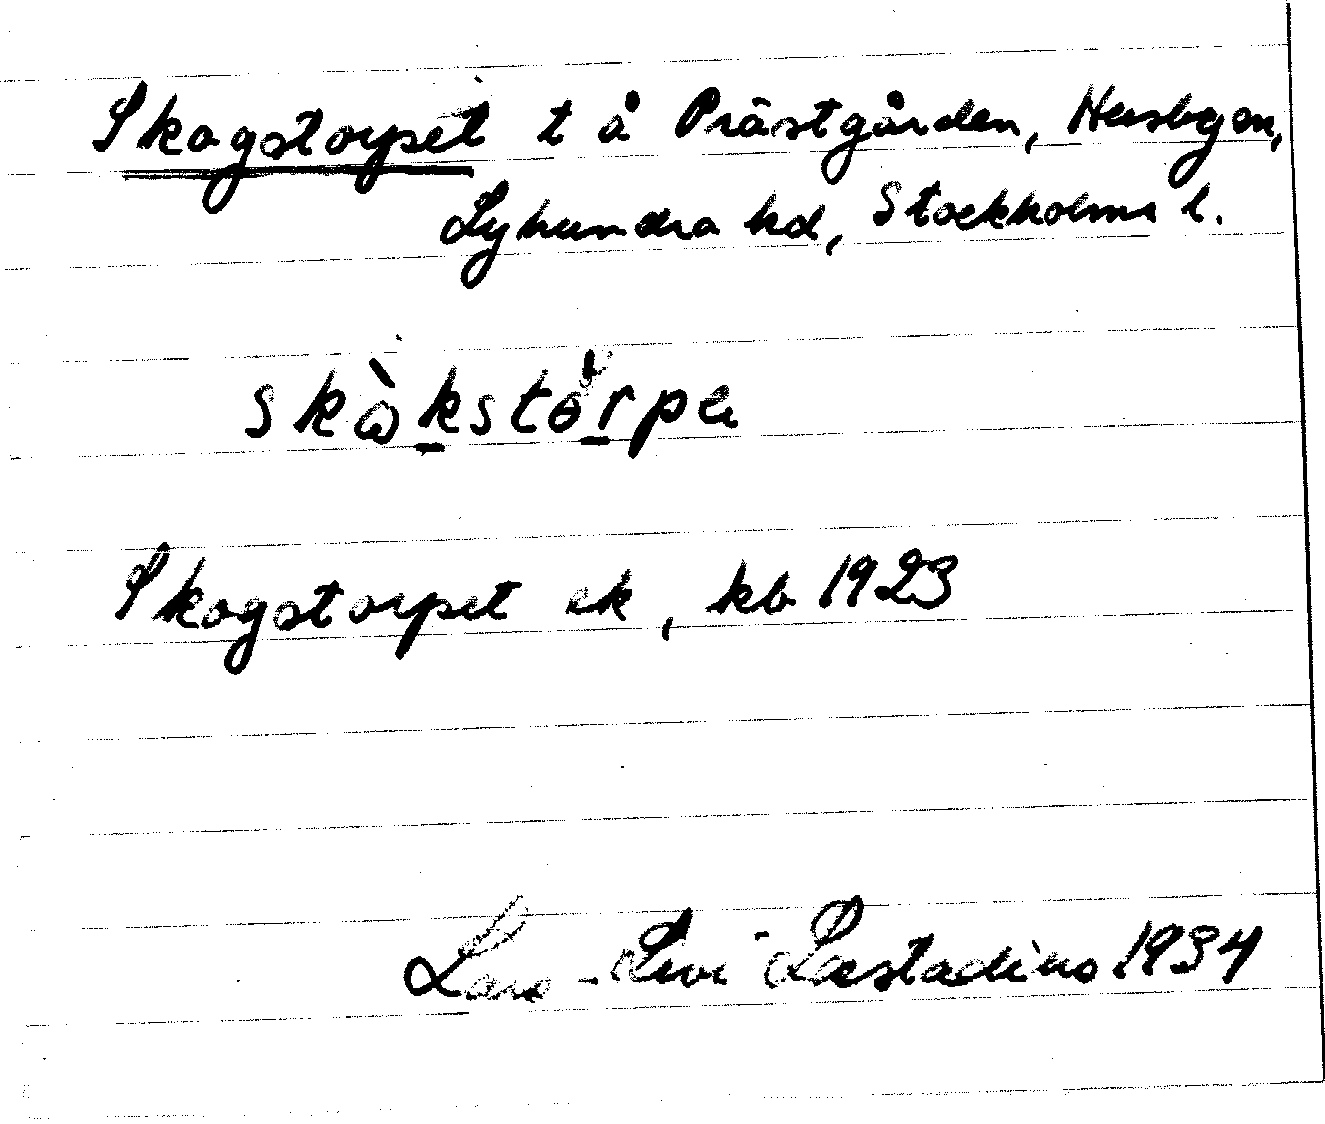 Skogstorpet t å Prästgården, Husbyön,
Lyhundra hd, Stockholms l.
skɷ̀kstɵ̀rpɐ
Skogstorpet ek, kb 1923
Lars-Levi Læstadius 1934